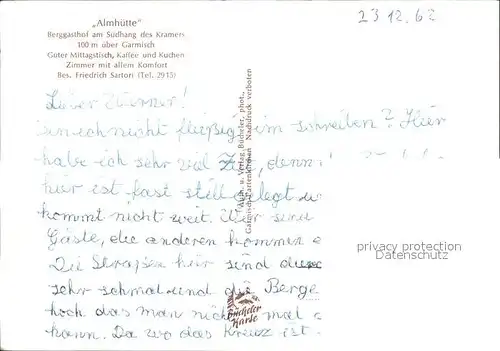 „Almhütte"
Berggasthof am Südhang des Kramers
100 m über Garmisch
Guter Mittagstisch, Kaffee und Kuchen
Zimmer mit allem Komfort
Bes. Friedrich Sartori (Tel. 2915)
23.12.62
Lieber Werner!
bin ich nicht fleißig im schreiben? Hier
habe ich sehr viel Zeit, denn
hier ist fast still gelegt u
kommt nicht weit. Wir sind
Gäste, die anderen kommen
Die Straßen hier sind
sehr schmal und die Berge
hoch das man nicht mal
kann. Da wo das Kreuz ist
u. Verlag Bücheler, phot.,
Garmisch-Partenkirchen Nachdruck verboten
Bücheler
Karte
privacy protection
Datenschutz